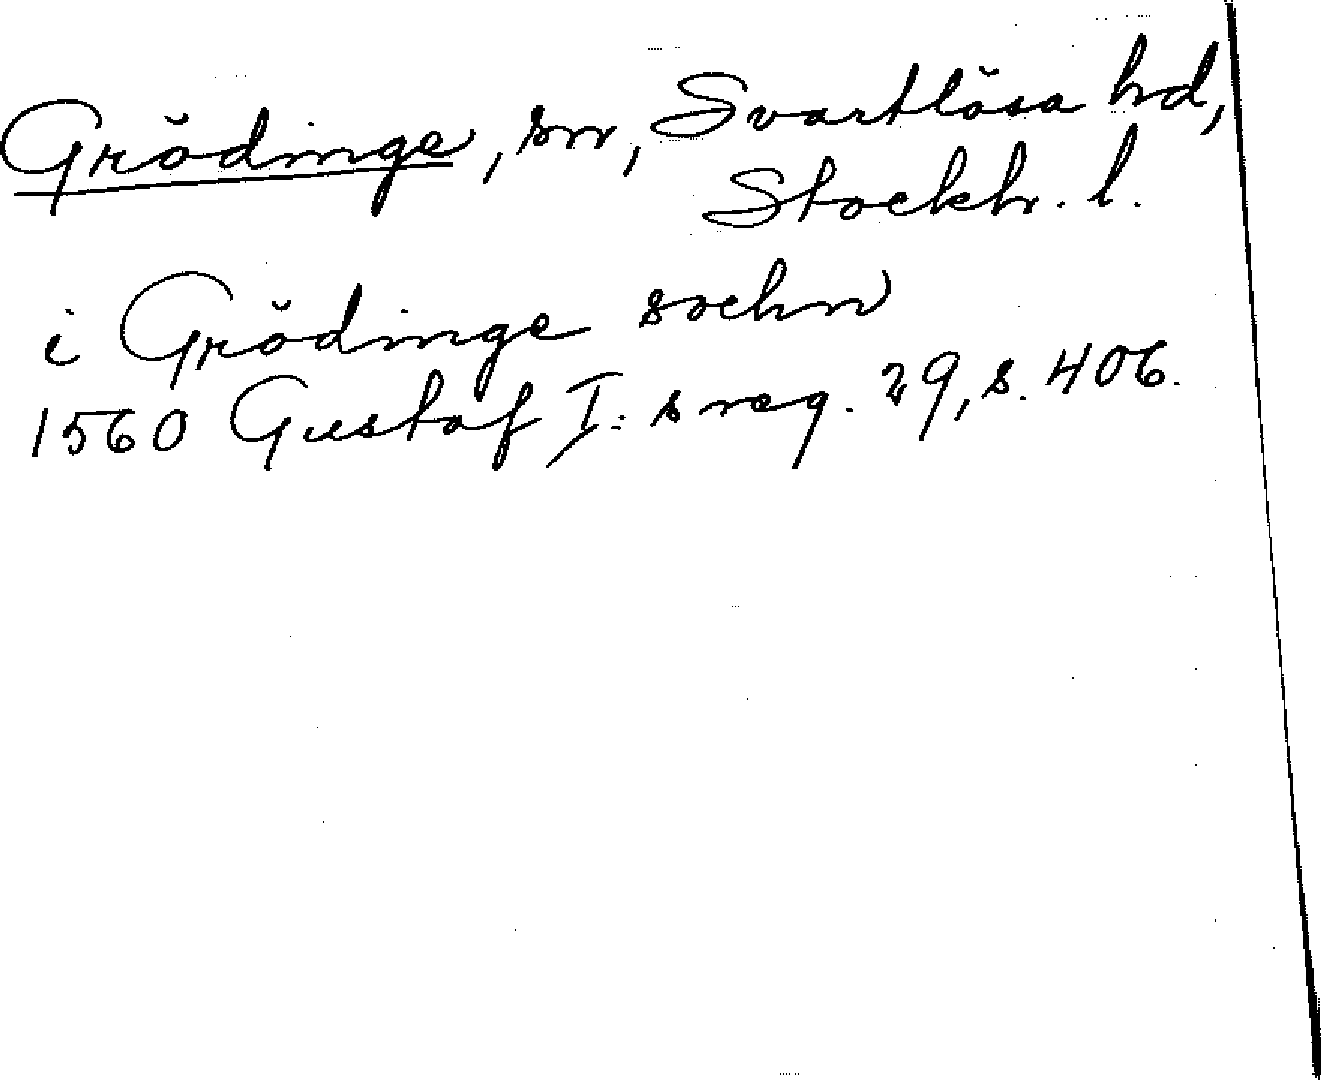 Grödinge, sn, Svartlösa hd,
Stockh. l.
i Grödinge sochn
1560 Gustaf I: s reg. 29, s. 406.